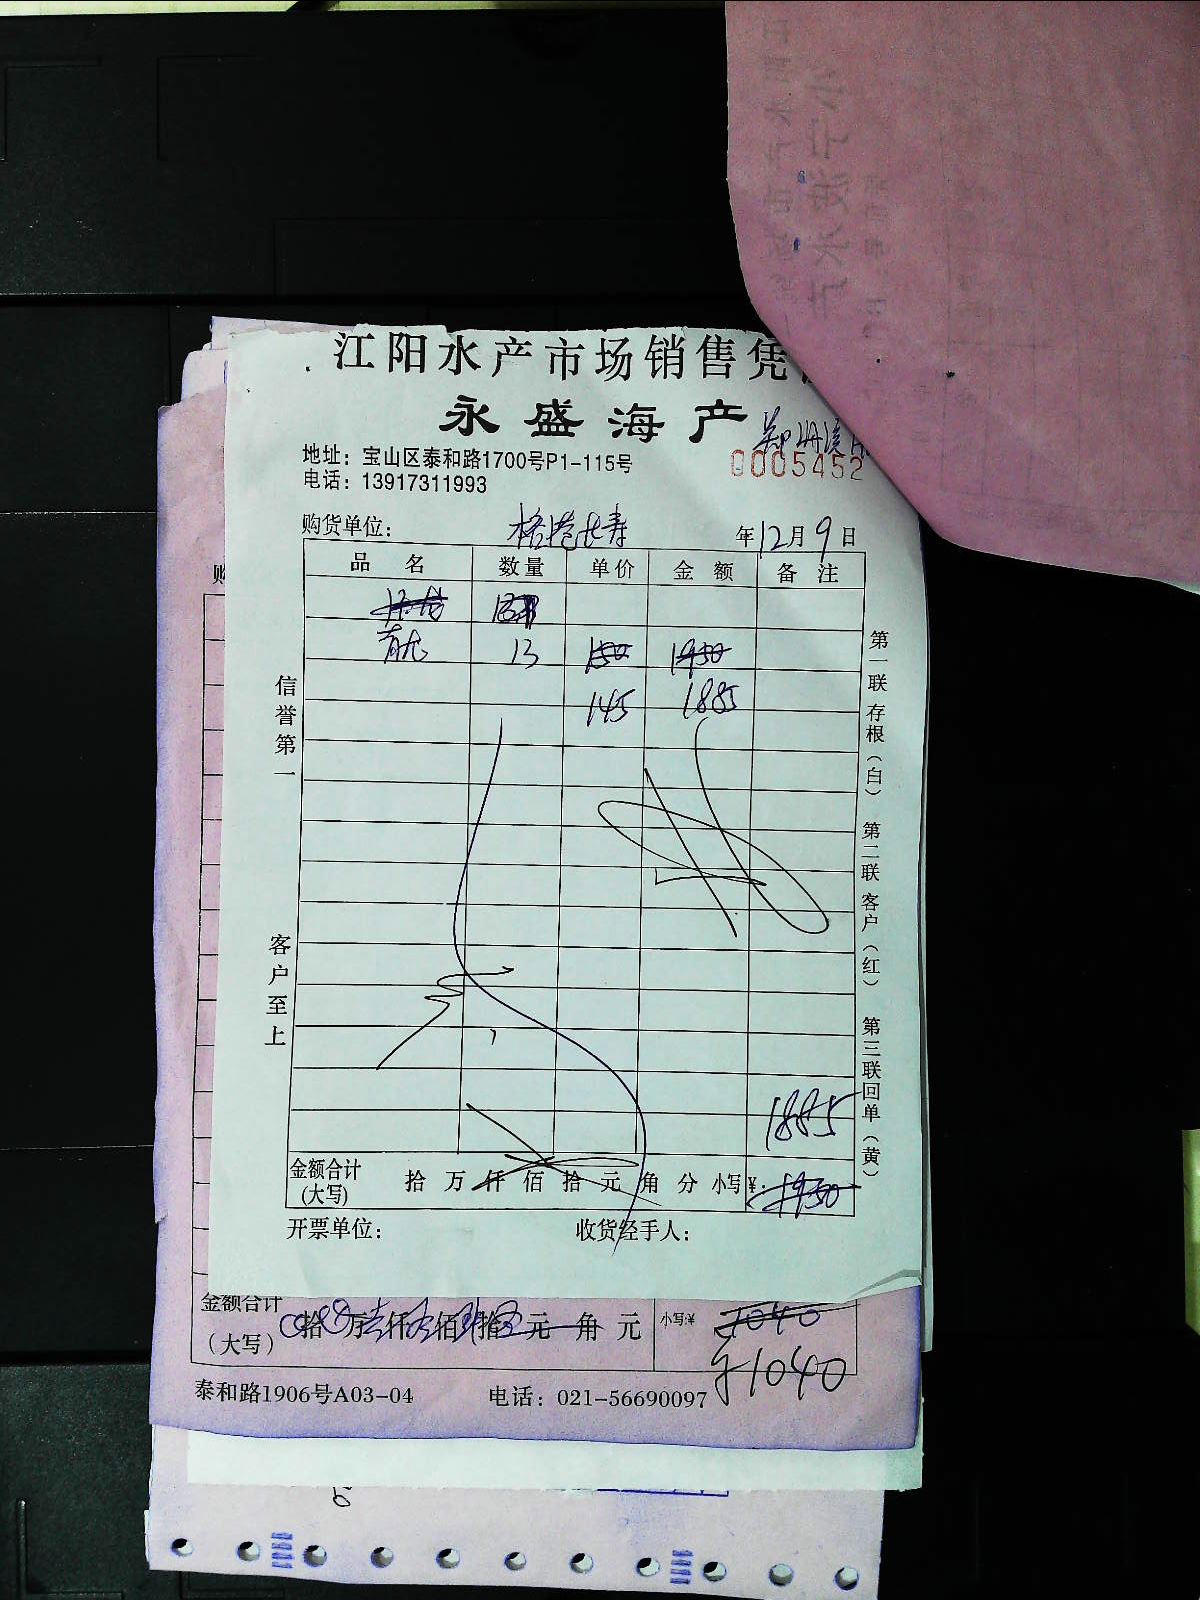 江阳水产市场销售凭
永盛海产
地址：宝山区泰和路1700号P1-115号
0005452
电话：13917311993
购货单位： 年12月9日
品 名 数量 单价 金额 备注
青龙 13 150 1950
145 1885
信誉第一
客户至上
第一联 存根（白） 第二联 客户（红） 第三联 回单（黄）
1885
金额合计(大写) 拾 万 仟 佰 拾 元 角 分 小写¥: 1950
开票单位： 收货经手人：
购
金额合计（大写） 拾 万 仟 佰 拾 元 角 元 小写:¥ 1040
¥1040
泰和路1906号A03-04 电话：021-56690097